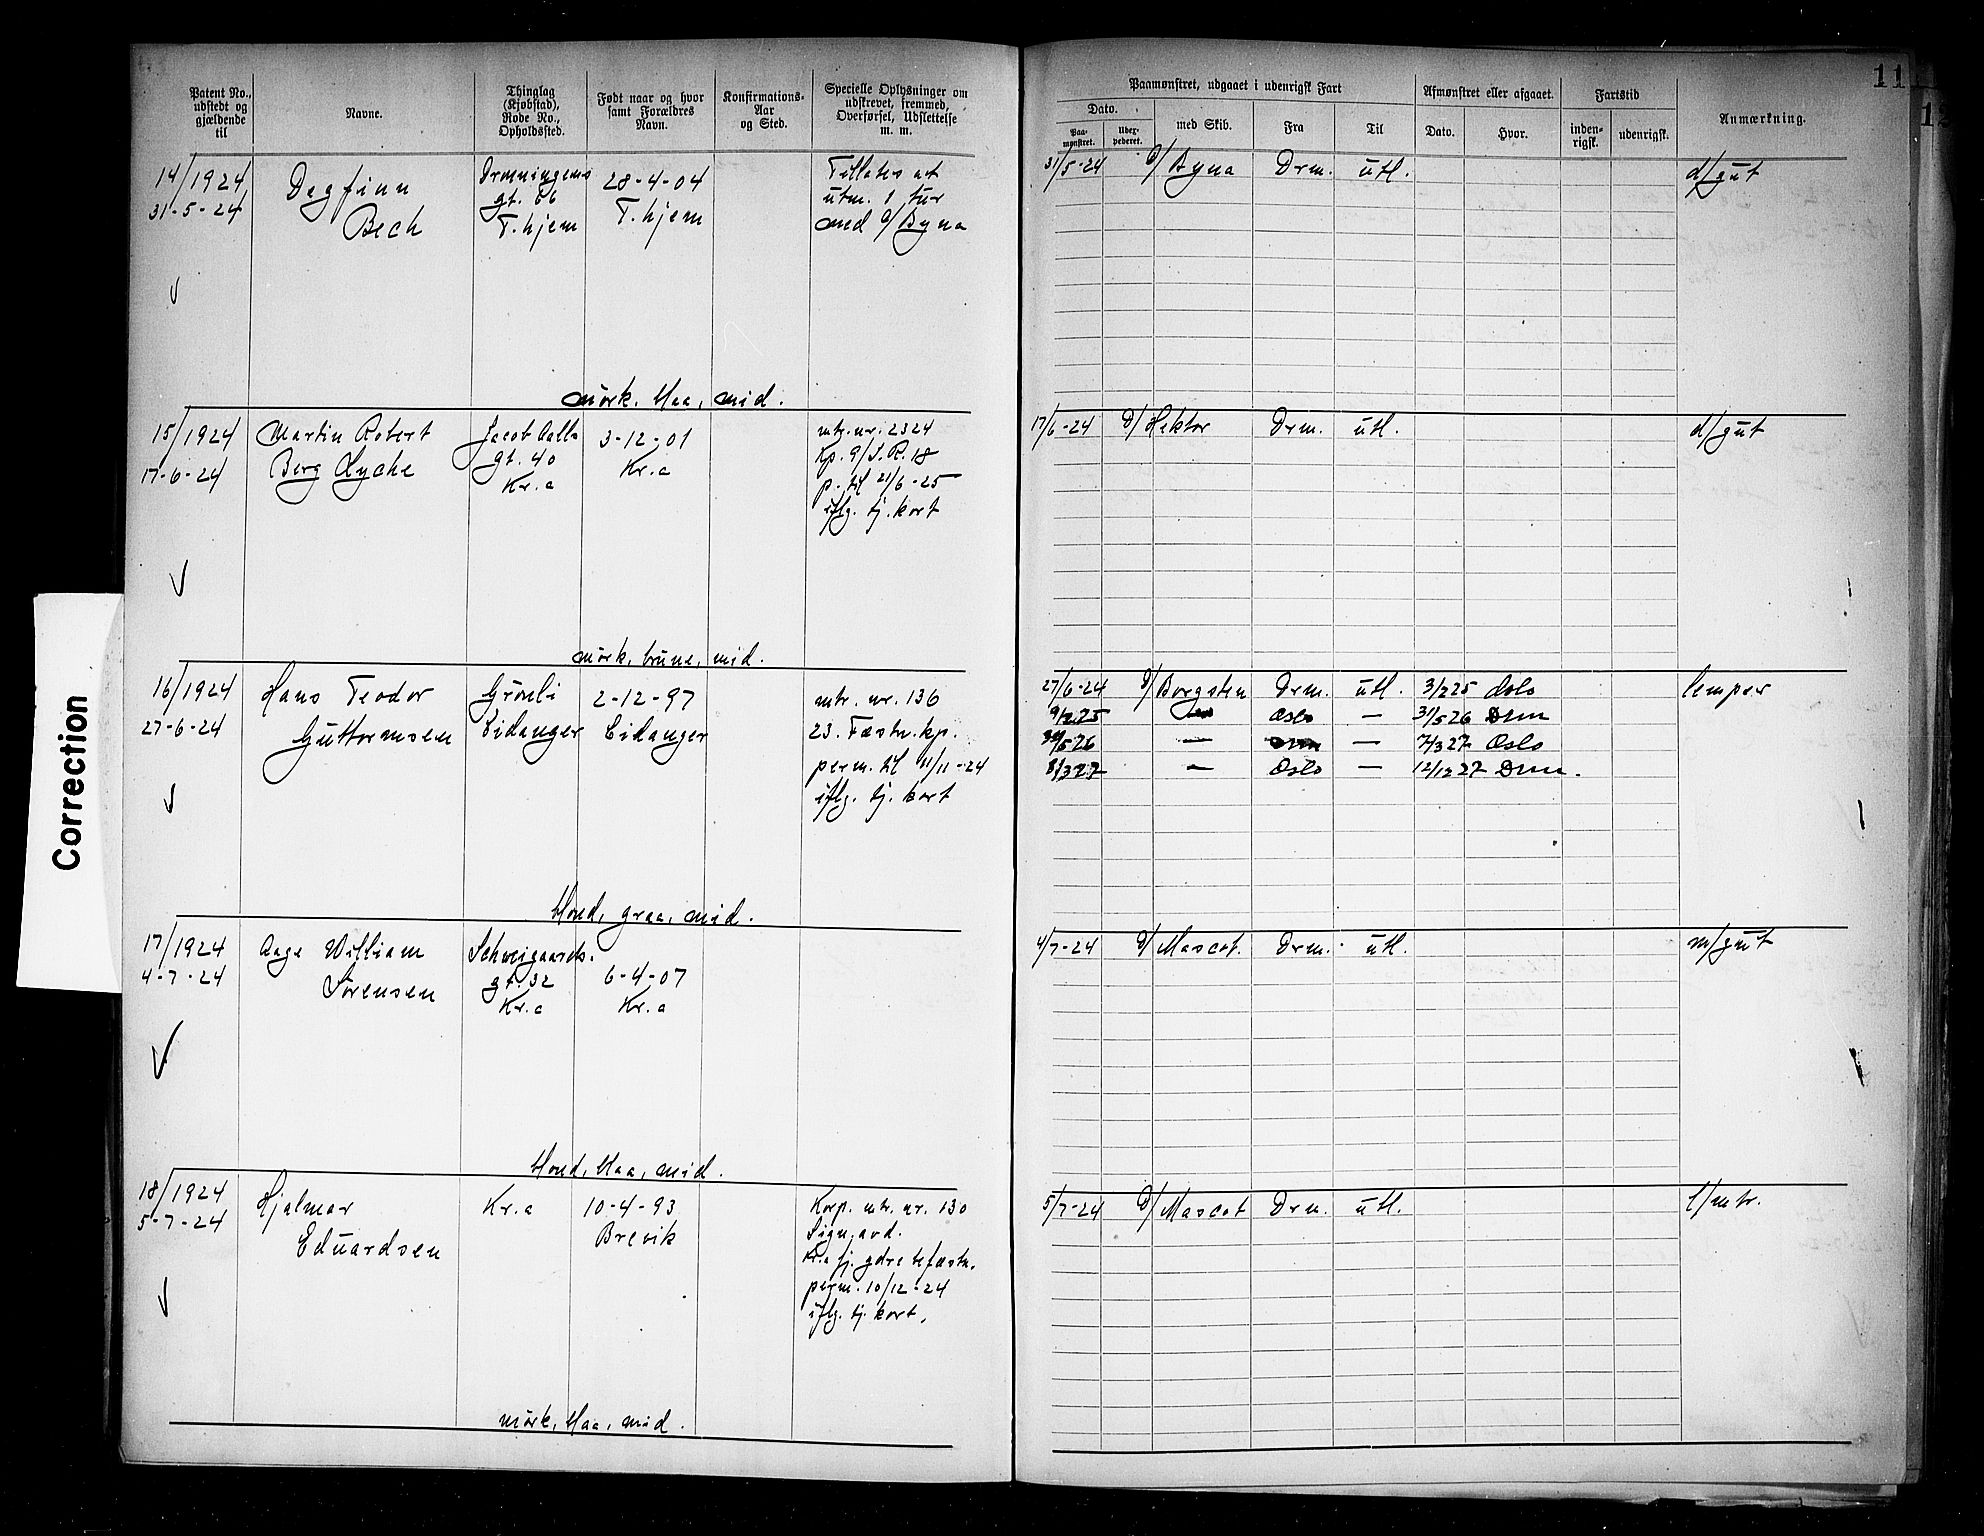 Patent No., udstedt og gjældende til
Navne.
Thinglag (Kjøbstad), Rode No., Opholdssted.
Født naar og hvor samt Forældres Navn.
Konfirmations-Aar og Sted.
Specielle Oplysninger om udskrevet, fremmed, Overførsel, Udslettelse m. m.
Paamønstret, udgaaet i udenrigsk Fart
Dato.
Paa-mønstret.
med Skib.
Fra
Til
Afmønstret eller afgaaet.
Dato.
Hvor.
Fartstid
inden-rigsk.
udenrigsk.
Anmærkning.
11
14/1924
31-5-24
Dagfinn
Bech
Dronningens
gt. 66
T.hjem
28-4-04
T.hjem
Tillates at
utm. 1 tur
med D/ Byna
31/5-24 D/ Byna Drm. utl. d/gut
mörk. blaa, mid.
15/1924
17-6-24
Martin Robert
Berg Lyche
Jacob Aalls
gt. 40
Kr.a
3-12-01
Kr.a
mtr. nr. 2324
Kp. 9/I.R. 18
p. til 21/6-25
iflg. tj. kort
17/6-24 D/ Hektor Drm. utl. d/gut
mörk, brune, mid.
16/1924
27-6-24
Hans Teodor
Guttormsen
Grönli
Eidanger
2-12-97
Eidanger
mtr. nr. 136
23. Fæstn. kp.
perm. til 11/11-24
iflg. tj. kort
27/6-24 D/ Borgsten Drm. utl. 3/2 25 Oslo lemper
9/2 25 — Oslo — 31/5 26 Drm
/5 26 — Drm — 7/3 27 Oslo
8/3 27 — Oslo — 12/12 27 Drm.
blond, graa, mid.
17/1924
4-7-24
Aage William
Sörensen
Schweigaards.
gt. 32
Kr.a
6-4-07
Kr.a
4/7-24 D/ Mascot. Drm. utl. m/gut
blond, blaa, mid.
18/1924
5-7-24
Hjalmar
Eduardsen
Kr.a
10-4-93
Brevik
Korp. mtr. nr. 130
Sign. avd.
Kr.a fj. ydre befæstn.
perm. 10/12-24
iflg. tj. kort.
5/7-24 D/ Mascot Drm. utl. l/mtr.
mörk, blaa, mid.
Correction